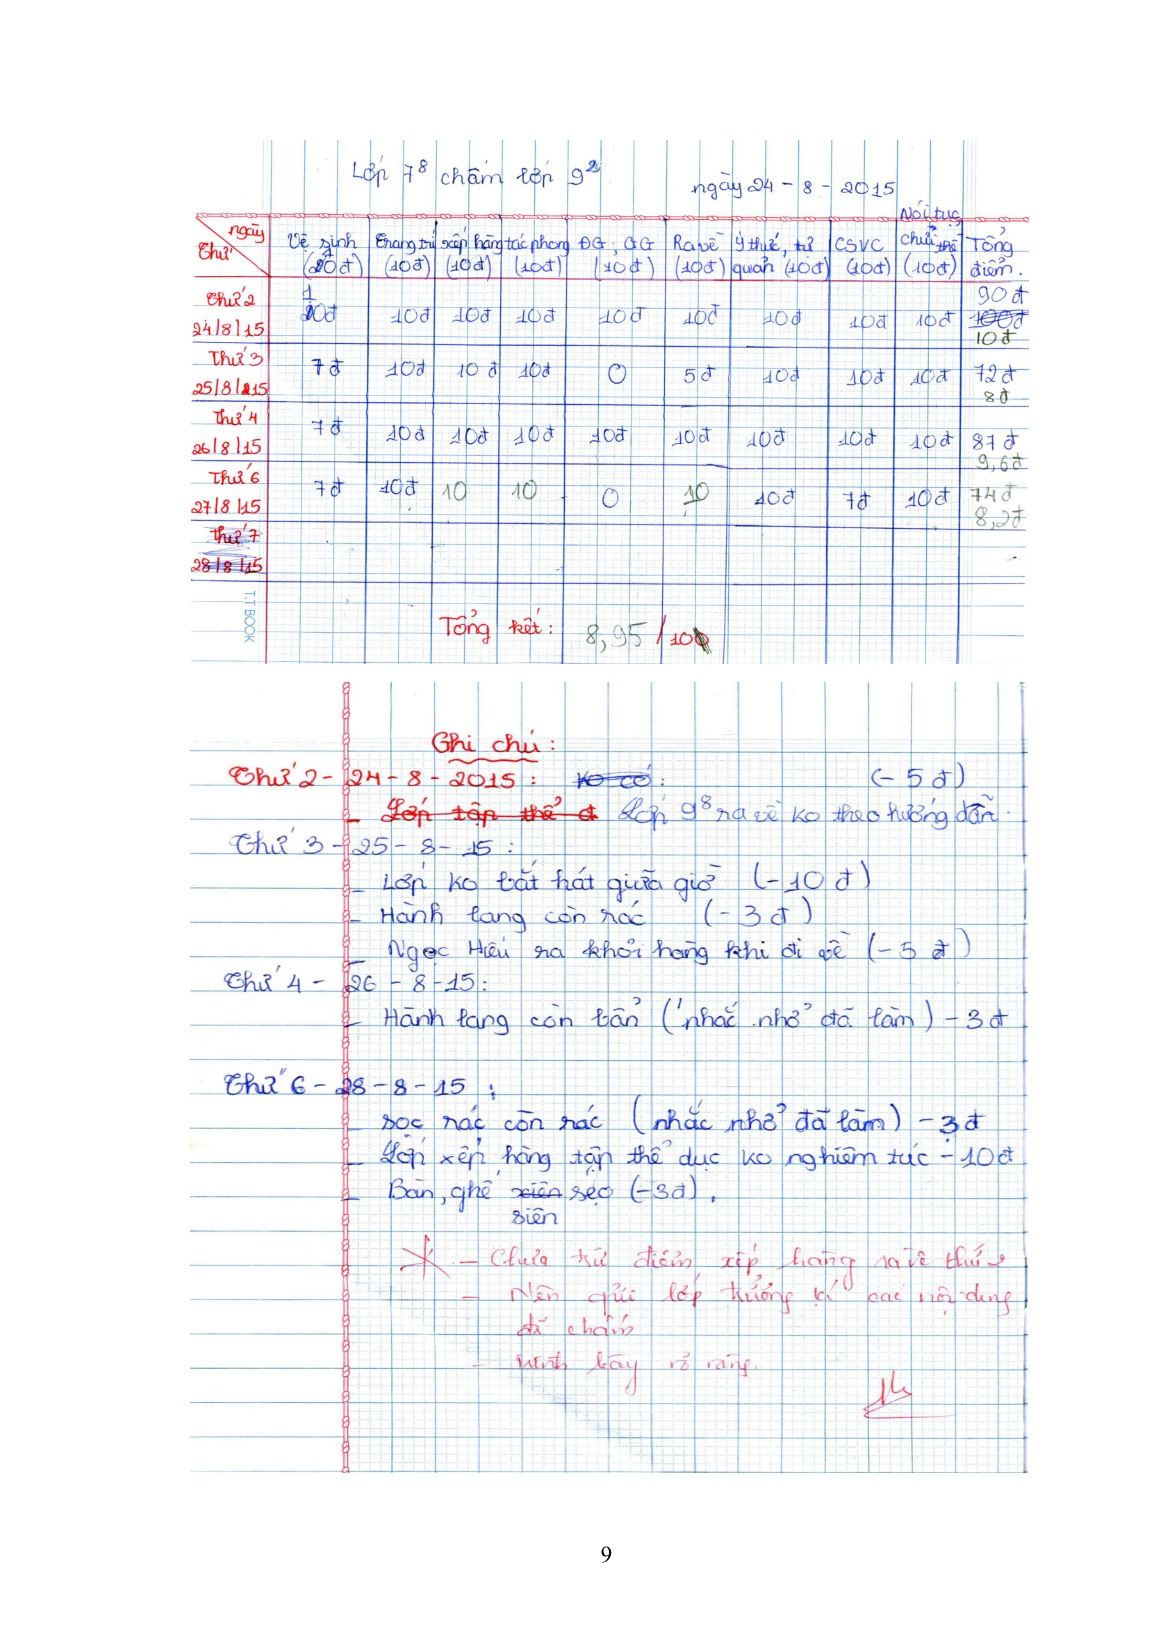 Lớp 7⁸ chấm lớp 9² ngày 24 - 8 - 2015
ngày Thứ | Vệ sinh (10đ) | Trang trí (10đ) | xếp hàng (10đ) | tác phong (10đ) | ĐG, GG (10đ) | Ra về (10đ) | Ý thức, tự quản (10đ) | CSVC (10đ) | Nói tục chửi thề (10đ) | Tổng điểm.
Thứ 2 24/8/15 | 10đ | 10đ | 10đ | 10đ | 10đ | 10đ | 10đ | 10đ | 10đ | 90đ 100đ 10đ
Thứ 3 25/8/15 | 7đ | 10đ | 10đ | 10đ | 0 | 5đ | 10đ | 10đ | 10đ | 72đ 8đ
Thứ 4 26/8/15 | 7đ | 10đ | 10đ | 10đ | 10đ | 10đ | 10đ | 10đ | 10đ | 87đ 9,6đ
Thứ 6 27/8/15 | 7đ | 10đ | 10 | 10 | 0 | 10 | 10đ | 7đ | 10đ | 74đ 8,2đ
Thứ 7 28/8/15
T.T BOOK
Tổng kết: 8,95/10
Ghi chú:
Thứ 2 - 24 - 8 - 2015: ko có: (- 5 đ)
- Lớp tập thể đ Lớp 9⁸ ra về ko theo hướng dẫn.
Thứ 3 - 25 - 8 - 15:
- Lớp ko bắt hát giữa giờ (- 10 đ)
- Hành lang còn rác (- 3 đ)
- Ngọc Hiếu ra khỏi hàng khi đi về (- 5 đ)
Thứ 4 - 26 - 8 - 15:
- Hành lang còn bẩn (nhắc nhở đã làm) - 3 đ
Thứ 6 - 28 - 8 - 15:
- sọc rác còn rác (nhắc nhở đã làm) - 3 đ
- Lớp xếp hàng tập thể dục ko nghiêm túc - 10 đ
- Bàn, ghế xiên sẹo (- 3đ).
siên
- Chưa trừ điểm xếp hàng ra về thứ 2
- Nên gửi lớp trưởng kí các nội dung
đã chấm
- trình bày rõ ràng.
9